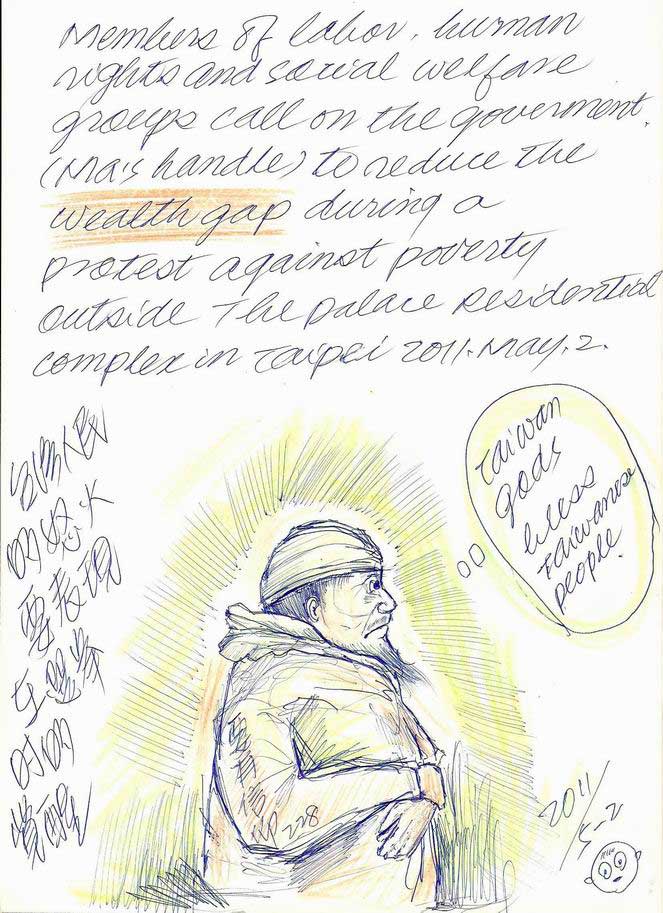 Members of labor, human
rights and social welfare
groups call on the goverment.
(Ma's handle) to reduce the
wealth gap during a
protest against poverty
outside The palace residential
complex in Taipei 2011. May. 2.
Taiwan
gods
bless
Taiwanese
people.
台灣人民
的怒火
要表現
在選舉
時的
覺醒
228
2011/
5-2